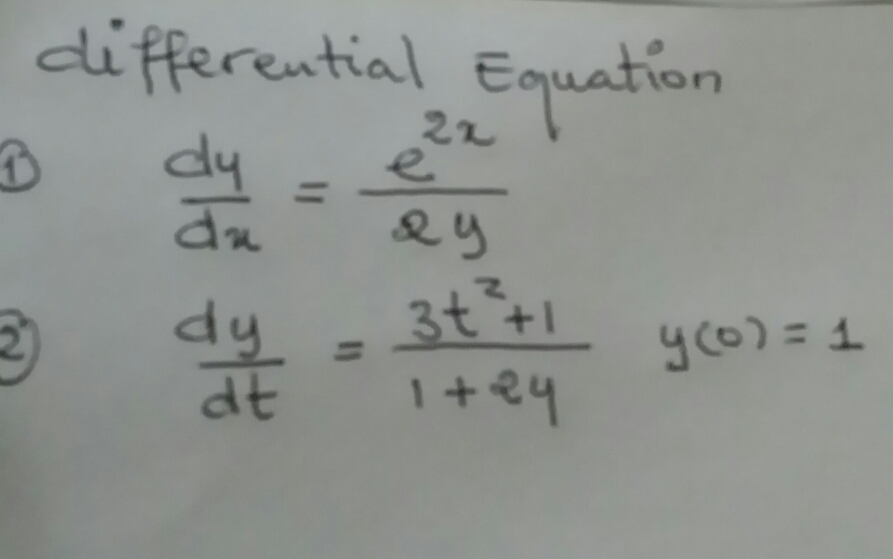 differential Equation
① dy/dx = e^{2x}/2y
② dy/dt = 3t²+1/1+2y y(0) = 1